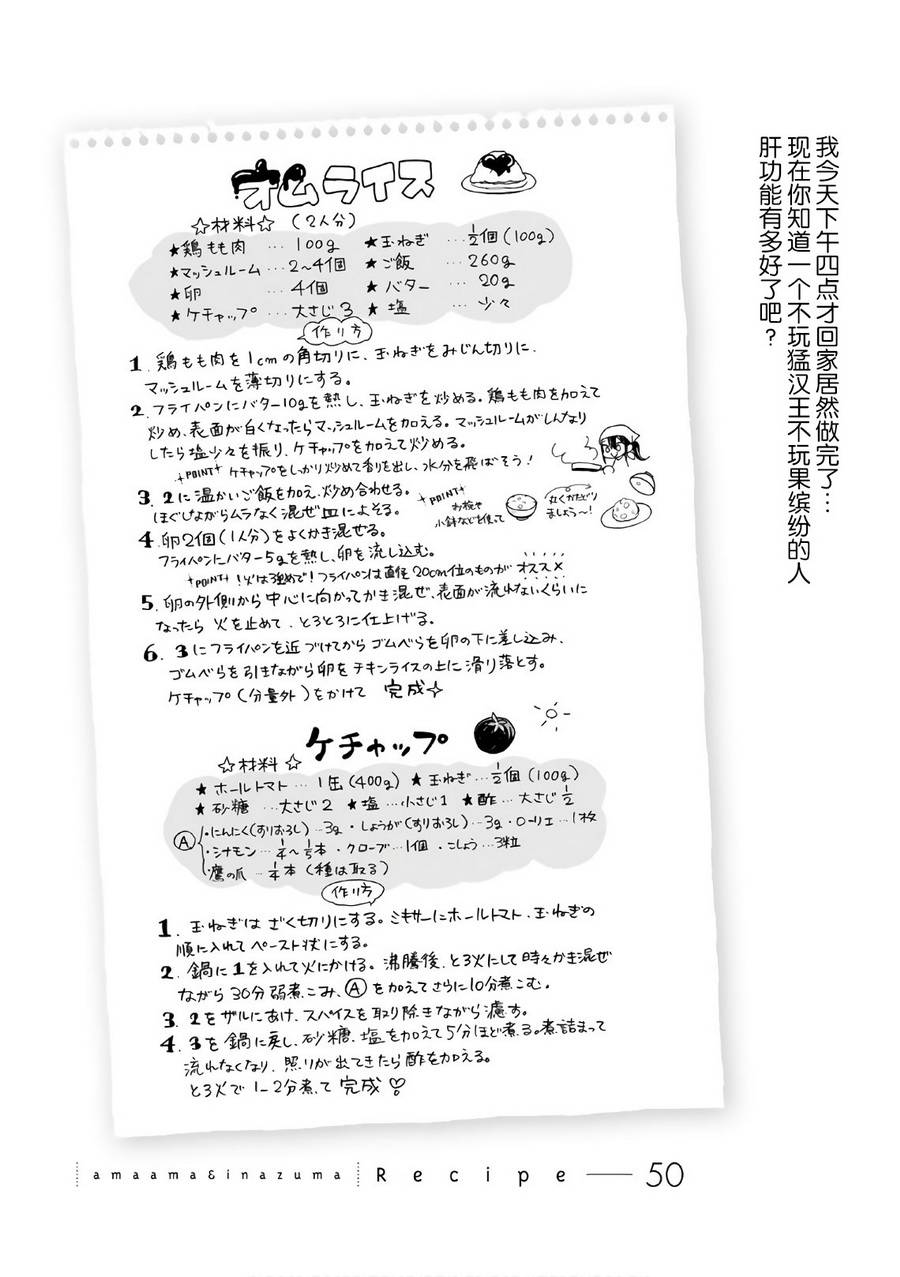 我今天下午四点才回家居然做完了…
现在你知道一个不玩猛汉王不玩果缤纷的人
肝功能有多好了吧？
オムライス
☆材料☆ （2人分）
★鶏もも肉 … 100g ★玉ねぎ …½個(100g)
★マッシュルーム…2〜4個 ★ご飯 … 260g
★卵 … 4個 ★バター … 20g
★ケチャップ … 大さじ3 ★塩 … 少々
作り方
1. 鶏もも肉を1cmの角切りに、玉ねぎをみじん切りに、
マッシュルームを薄切りにする。
2. フライパンにバター10gを熱し、玉ねぎを炒める。鶏もも肉を加えて
炒め、表面が白くなったらマッシュルームを加える。マッシュルームがしんなり
したら塩少々を振り、ケチャップを加えて炒める。
POINT ケチャップをしっかり炒めて香りを出し、水分を飛ばそう！
3. 2に温かいご飯を加え、炒め合わせる。
ほぐしながらムラなく混ぜ皿によそる。
POINT
お椀や
小鉢などを使って
丸くかたどり
ましょう〜！
4. 卵2個(1人分)をよくかき混ぜる。
フライパンにバター5gを熱し、卵を流し込む。
POINT！火は強めで！フライパンは直径20cm位のものがオススメ
5. 卵の外側から中心に向かってかき混ぜ、表面が流れないくらいに
なったら火を止めて、とろとろに仕上げる。
6. 3にフライパンを近づけてからゴムベらを卵の下に差し込み、
ゴムべらを引きながら卵をチキンライスの上に滑り落とす。
ケチャップ(分量外)をかけて 完成☆
ケチャップ
☆材料☆
★ホールトマト…1缶(400g) ★玉ねぎ…½個(100g)
★砂糖 …大さじ2 ★塩…小さじ1 ★酢…大さじ½
Ⓐ ・にんにく(すりおろし)…3g ・しょうが(すりおろし)…3g ・ローリエ…1枚
・シナモン…¼〜⅕本 ・クローブ…1個 ・こしょう…3粒
・鷹の爪…¼本（種は取る）
作り方
1. 玉ねぎはざく切りにする。ミキサーにホールトマト、玉ねぎの
順に入れてペースト状にする。
2. 鍋に1を入れて火にかける。沸騰後、とろ火にして時々かき混ぜ
ながら30分弱煮こみ、Ⓐを加えてさらに10分煮こむ。
3. 2をザルにあけ、スパイスを取り除きながら濾す。
4. 3を鍋に戻し、砂糖、塩を加えて5分ほど煮る。煮詰まって
流れなくなり、照りが出てきたら酢を加える。
とろ火で1–2分煮て完成♡
amaama&inazuma Recipe — 50